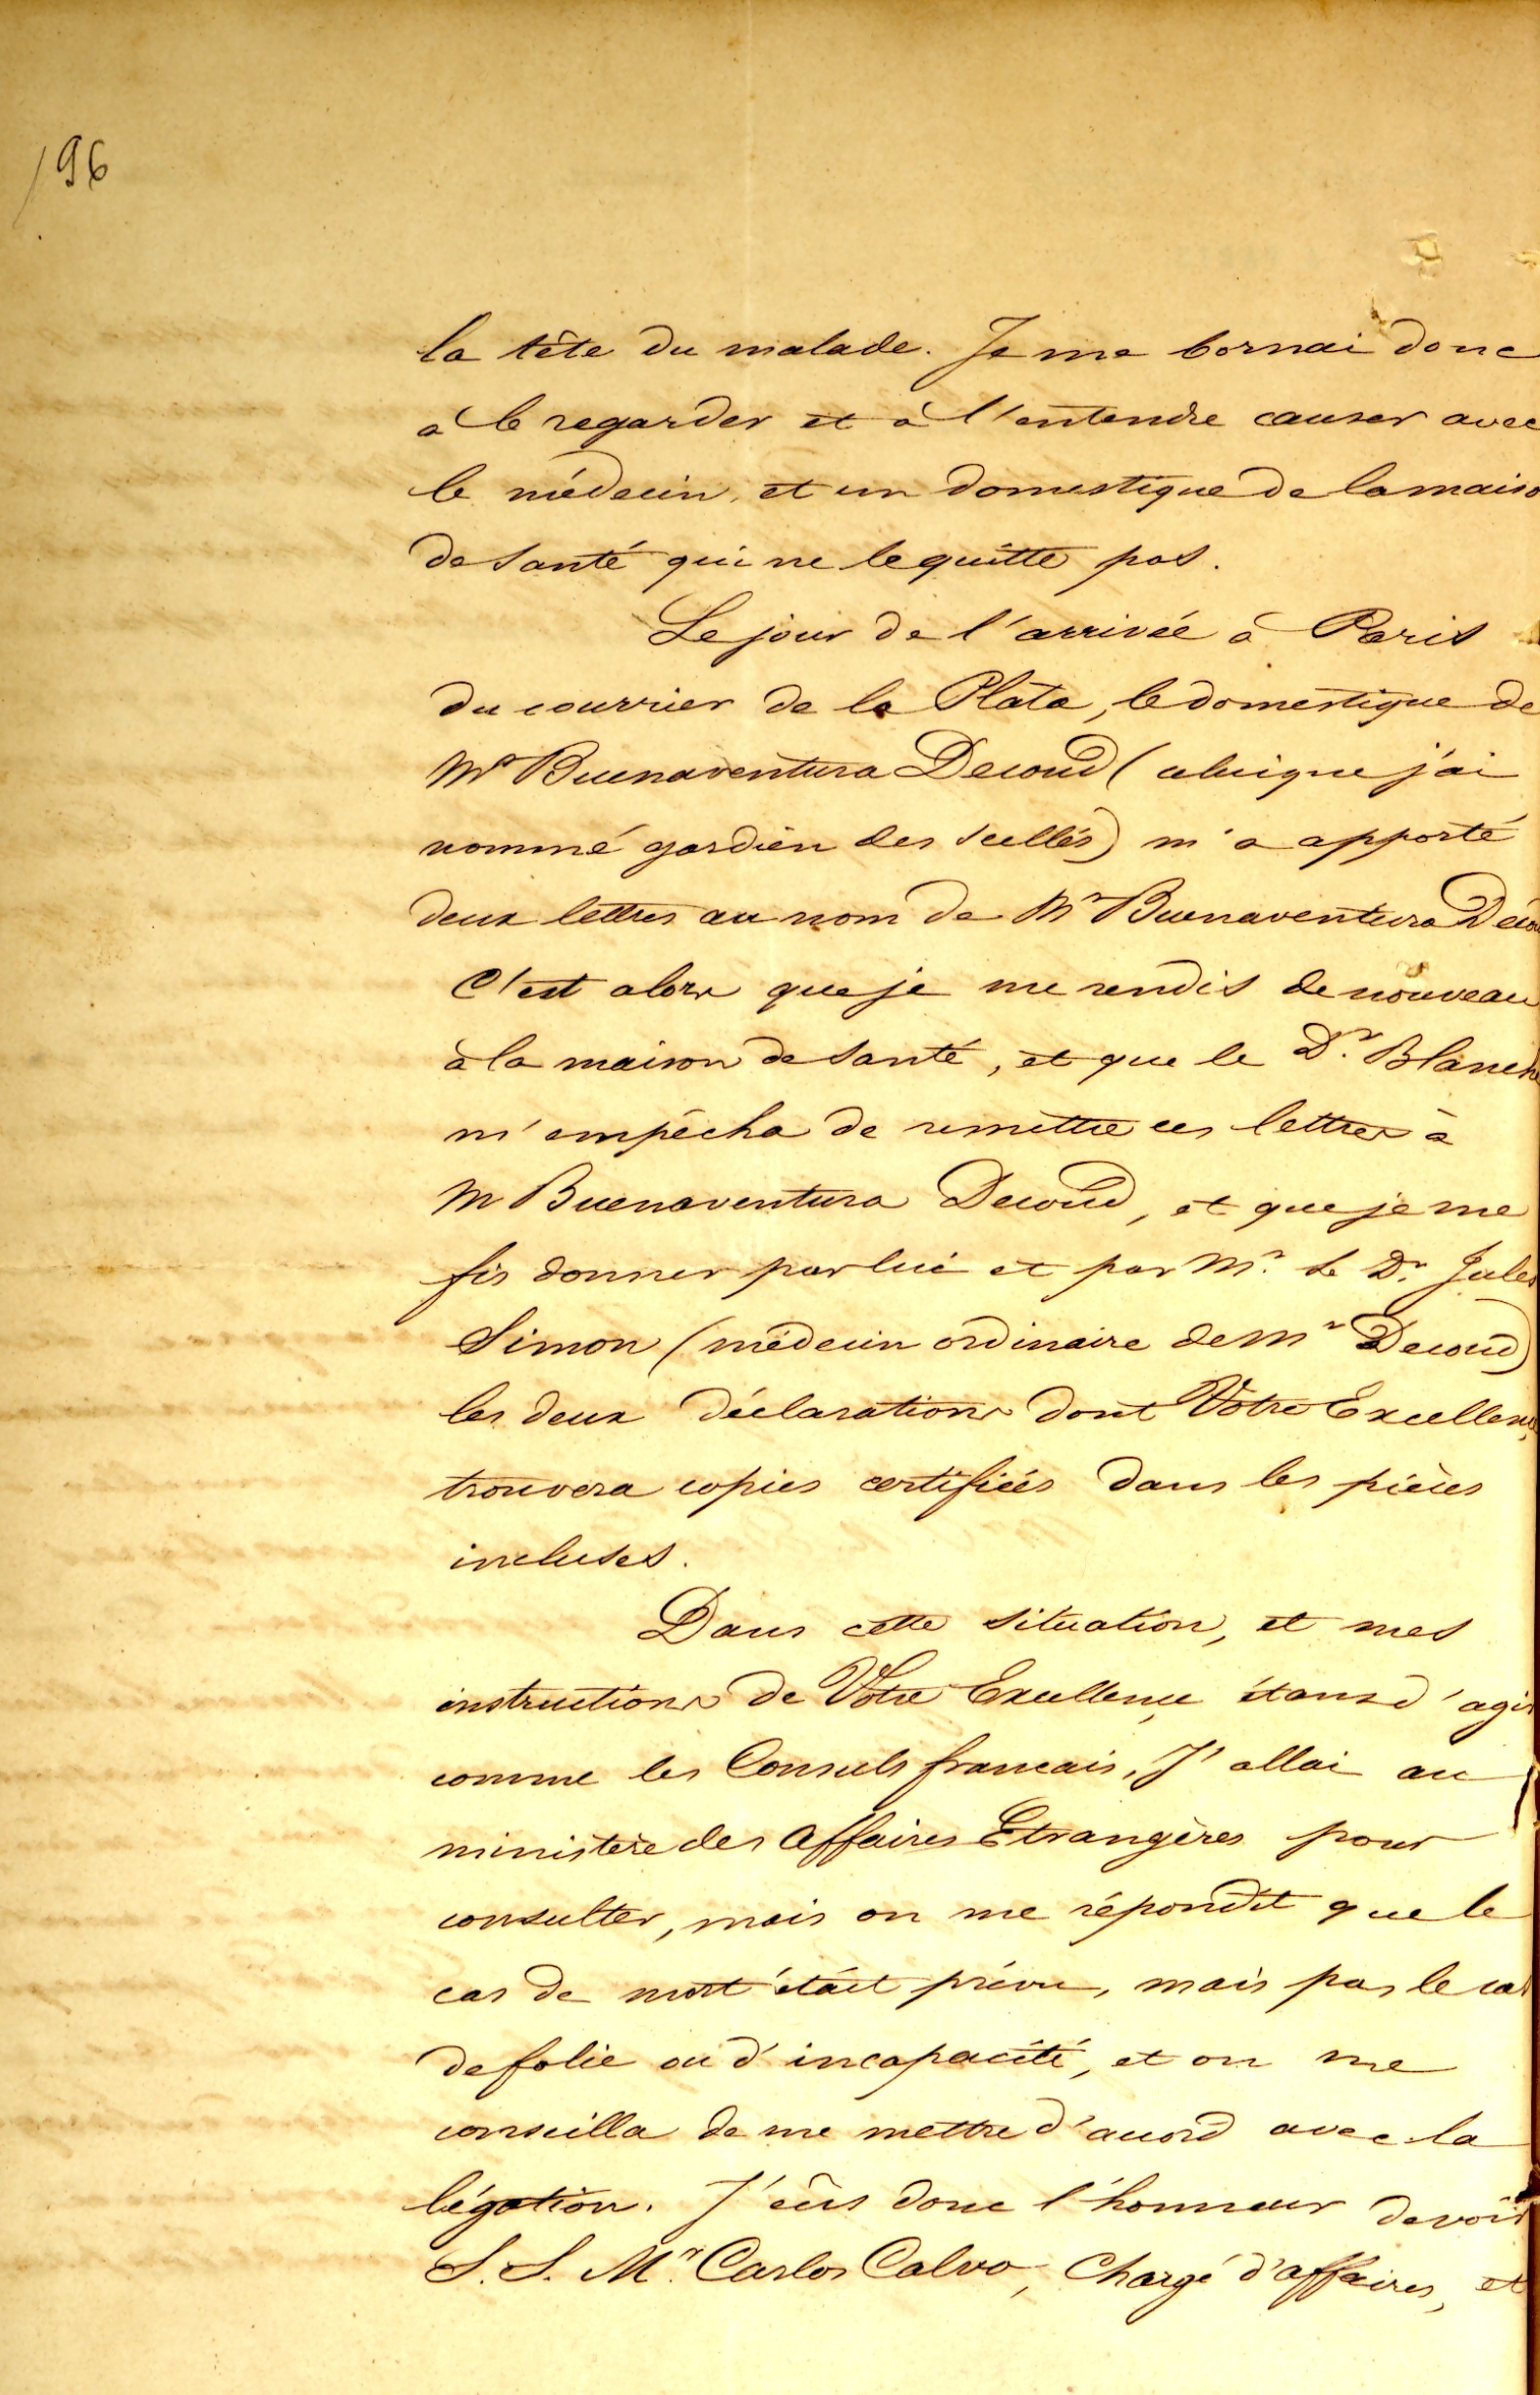 196
la tête du malade. Je me bornai donc
à le regarder et à l'entendre causer avec
le médecin, et un domestique de la maiso
de santé qui ne le quitte pas.
Le jour de l'arrivée à Paris
du courrier de la Plata, le domestique de
Mr Buenaventura Decoud (celui que j'ai
nommé gardien des scellés) m'a apporté
deux lettres au nom de Mr Buenaventura Decou
C'est alors que je me rendis de nouveau
à la maison de santé, et que le Dr. Blanche
m'empêcha de remettre ces lettres à
M Buenaventura Decoud, et que je me
fis donner par lui et par Mr. le Dr. Jules
Simon (médecin ordinaire de Mr Decoud)
les deux déclarations dont Votre Excellence
trouvera copies certifiées dans les pièces
incluses.
Dans cette situation, et mes
instructions de Votre Excellence étans d'agir
comme les Consuls francais, J'allai au
ministère des Affaires Etrangères pour
consulter, mais on me répondit que le
cas de mort était prévu, mais pas le cas
de folie ou d'incapacité, et on me
conseilla de me mettre d'accord avec la
légation. J'eûs donc l'honneur de voir
S. S. Mr. Carlos Calvo, Chargé d'affaires, et